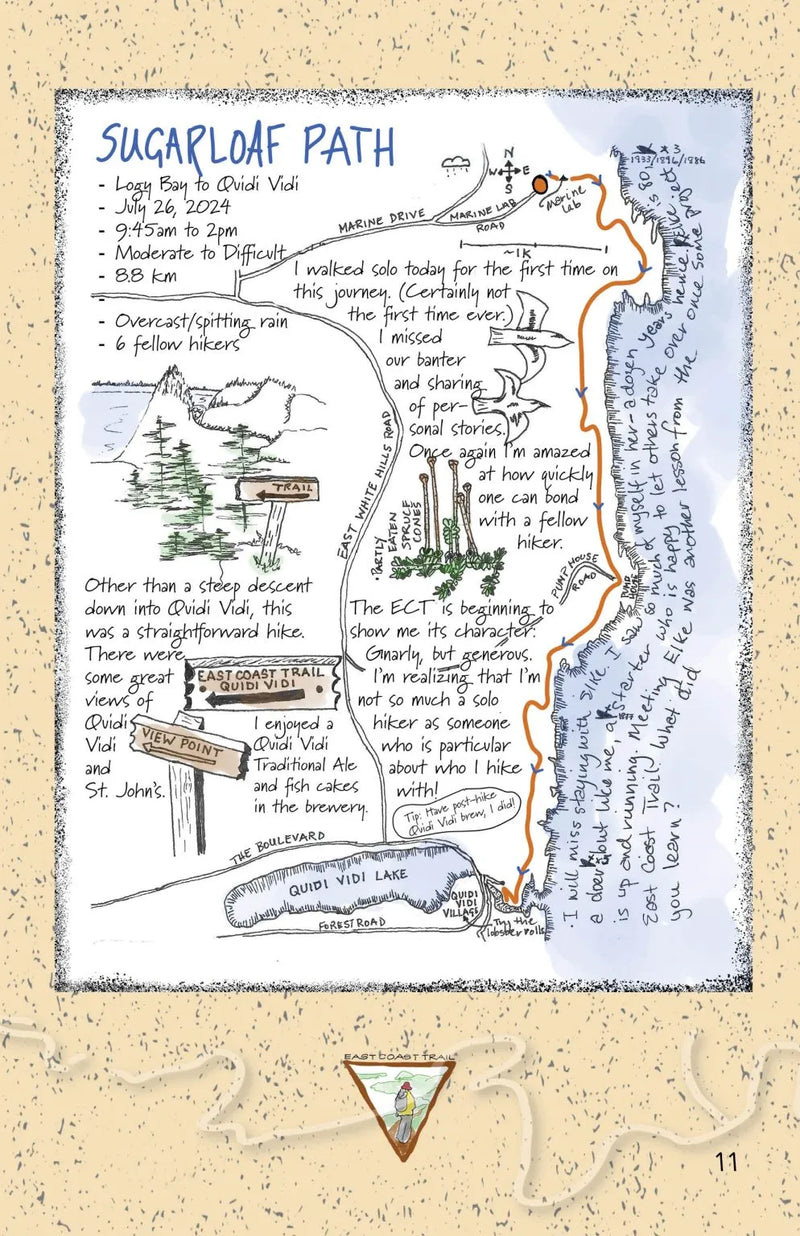 SUGARLOAF PATH
- Logy Bay to Quidi Vidi
- July 26, 2024
- 9:45am to 2pm
- Moderate to Difficult
- 8.8 km
-
- Overcast/spitting rain
- 6 fellow hikers
N
W E
S
Marine
Lab
MARINE DRIVE
MARINE LAB
ROAD
~1K
I walked solo today for the first time on
this journey. (Certainly not
the first time ever.)
I missed
our banter
and sharing
of per-
sonal stories.
Once again I'm amazed
at how quickly
one can bond
with a fellow
hiker.
EAST WHITE HILLS ROAD
• PARTLY
EATEN
SPRUCE
CONES
TRAIL
PUMP HOUSE
ROAD
PUMP
HOUSE
Other than a steep descent
down into Quidi Vidi, this
was a straightforward hike.
There were
some great
views of
Quidi
Vidi
and
St. John's.
EAST COAST TRAIL
QUIDI VIDI
VIEW POINT
I enjoyed a
Quidi Vidi
Traditional Ale
and fish cakes
in the brewery.
The ECT is beginning to
show me its character:
Gnarly, but generous.
I'm realizing that I'm
not so much a solo
hiker as someone
who is particular
about who I hike
with!
Tip: Have post-hike
Quidi Vidi brew, I did!
THE BOULEVARD
QUIDI VIDI LAKE
FOREST ROAD
QUIDI
VIDI
VILLAGE
Try the
lobster rolls
*3
1933/1896/1886
• I will miss staying with Elke. I saw so much of myself in her - a dozen years hence. Elke is 80,
a doer but like me, a starter who is happy to let others take over once some project
is up and running. Meeting Elke was another lesson from the
East Coast Trail. What did
you learn?
EAST COAST TRAIL
11